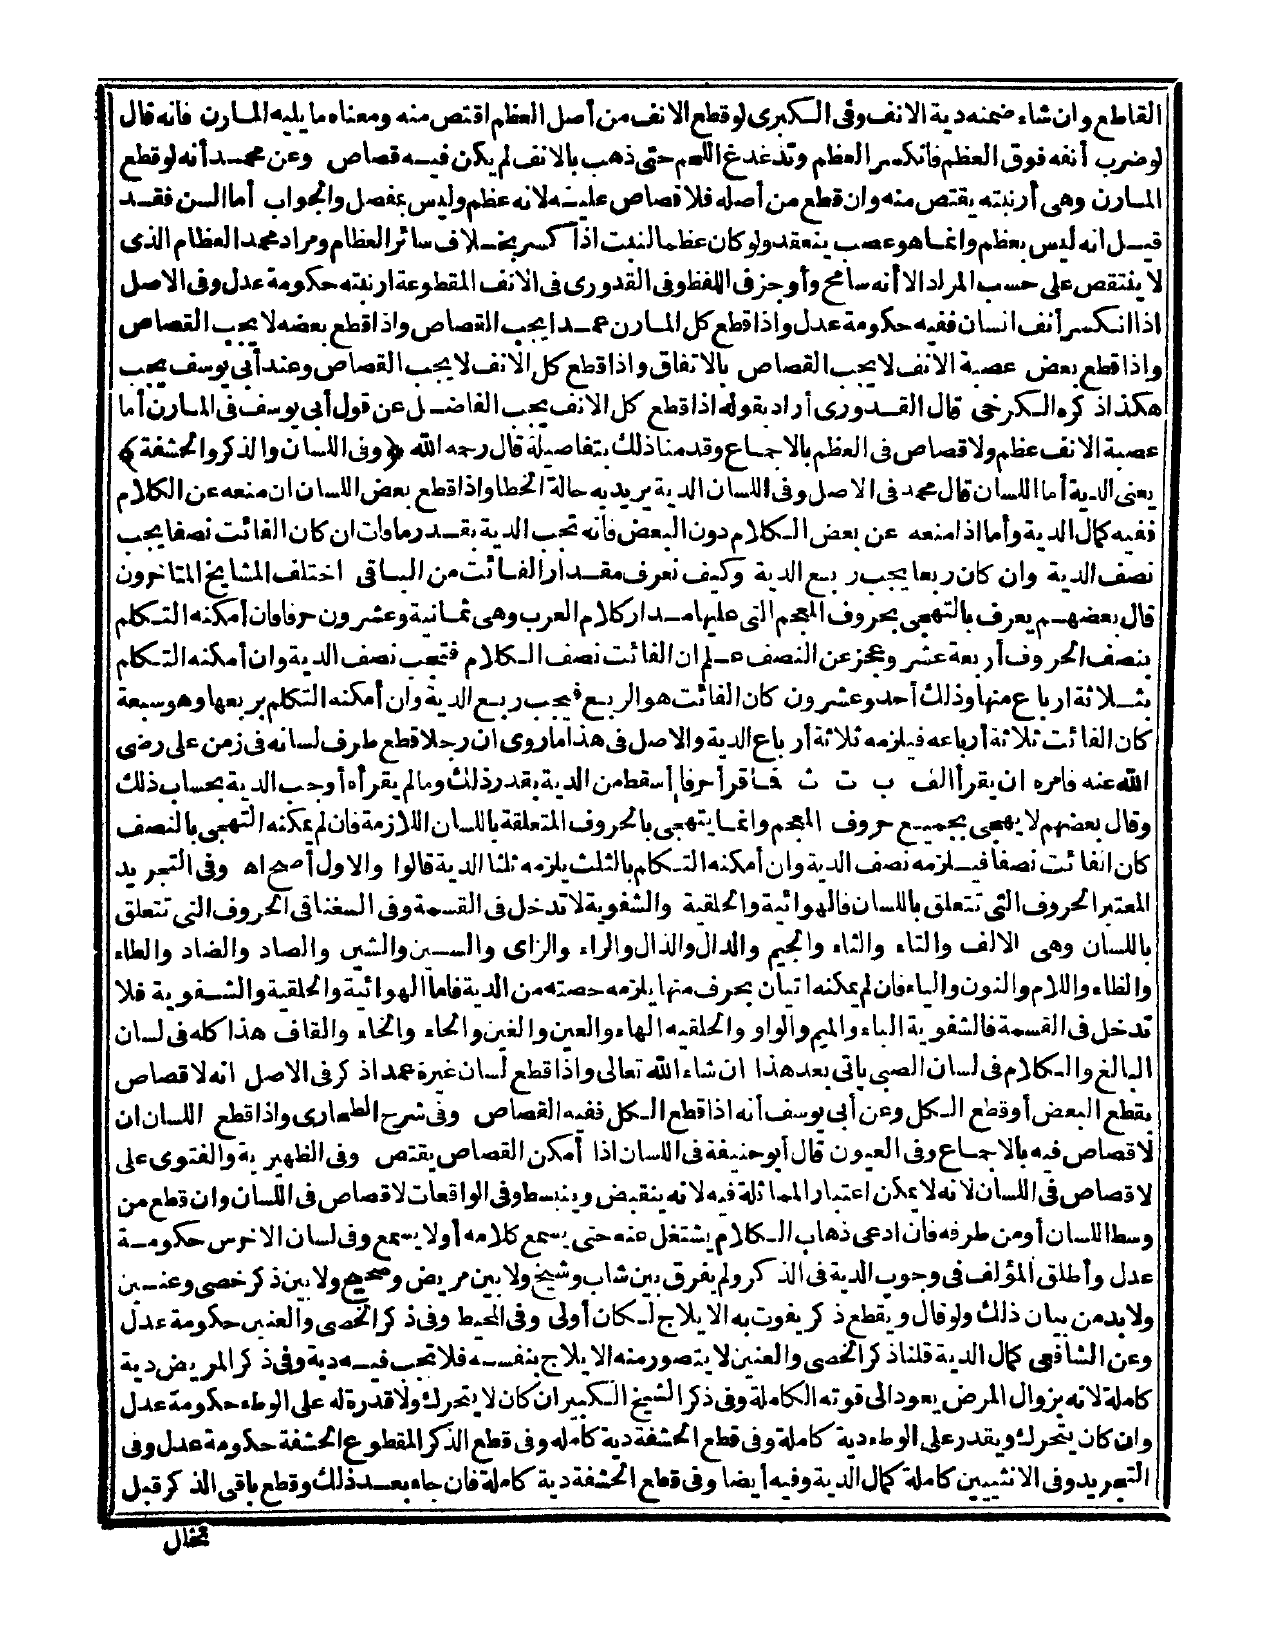 القاطع وان شاء ضمنه دية الانف وفى الكبرى لو قطع الانف من أصل العظم اقتص منه ومعناه ما يليه المارن فانه قال
لو ضرب أنفه فوق العظم فانكسر العظم وتذغدغ اللحم حتى ذهب بالانف لم يكن فيه قصاص وعن محمد أنه لو قطع
المارن وهى أرنبته يقتص منه وان قطع من أصله فلا قصاص عليه لانه عظم وليس بمفصل والجواب أما السن فقد
قيل انه ليس بعظم وانما هو عصب ينعقد ولو كان عظما لنبت اذا كسر بخلاف سائر العظام ومراد محمد العظام الذى
لا ينتقص على حسب المراد الا أنه سامح وأوجز فى اللفظ وفى القدورى فى الانف المقطوعة ارنبته حكومة عدل وفى الاصل
اذا انكسر أنف انسان ففيه حكومة عدل واذا قطع كل المارن عمدا يجب القصاص واذا قطع بعضه لا يجب القصاص
واذا قطع بعض عصبة الانف لا يجب القصاص بالاتفاق واذا قطع كل الانف لا يجب القصاص وعند أبى يوسف يجب
هكذا ذكره الكرخى قال القدورى أراد بقوله اذا قطع كل الانف يجب الفاضل عن قول أبى يوسف فى المارن أما
عصبة الانف عظم ولا قصاص فى العظم بالاجماع وقدمنا ذلك بتفاصيله قال رحمه الله ﴿وفى اللسان والذكر والحشفة﴾
يعنى الدية أما اللسان قال محمد فى الاصل وفى اللسان الدية يريد به حالة الخطا واذا قطع بعض اللسان ان منعه عن الكلام
ففيه كمال الدية وأما اذا منعه عن بعض الكلام دون البعض فانه تجب الدية بقدر ما فات ان كان الفائت نصفا يجب
نصف الدية وان كان ربعا يجب ربع الدية وكيف نعرف مقدار الفائت من الباقى اختلف المشايخ المتاخرون
قال بعضهم يعرف بالتهجى بحروف المعجم التى عليها مدار كلام العرب وهى ثمانية وعشرون حرفا فان أمكنه التكلم
بنصف الحروف أربعة عشر وعجز عن النصف علم ان الفائت نصف الكلام فتجب نصف الدية وان أمكنه التكلم
بثلاثة ارباع منها وذلك أحد وعشرون كان الفائت هو الربع فيجب ربع الدية وان أمكنه التكلم بربعها وهو سبعة
كان الفائت ثلاثة أرباعه فيلزمه ثلاثة أرباع الدية والاصل فى هذا ما روى ان رجلا قطع طرف لسانه فى زمن على رضى
الله عنه فامره ان يقرأ الف ب ت ث فماقرأ حرفا أسقط من الدية بقدر ذلك وما لم يقرأه أوجب الدية بحساب ذلك
وقال بعضهم لا يهجى بجميع حروف المعجم وانما يتهجى بالحروف المتعلقة باللسان اللازمة فان لم يمكنه التهجى بالنصف
كان الفائت نصفا فيلزمه نصف الدية وان أمكنه التكلم بالثلث يلزمه ثلثا الدية قالوا والاول أصح اه وفى التجريد
المعتبر الحروف التى تتعلق باللسان فالهوائية والحلقية والشفوية لا تدخل فى القسمة وفى السغناقى الحروف التى تتعلق
باللسان وهى الالف والتاء والثاء والجيم والدال والذال والراء والزاى والسين والشين والصاد والضاد والطاء
والظاء واللام والنون والياء فان لم يمكنه اتيان بحرف منها يلزمه حصته من الدية فاما الهوائية والحلقية والشفوية فلا
تدخل فى القسمة فالشفوية الباء والميم والواو والحلقيه الهاء والعين والغين والحاء والخاء والقاف هذا كله فى لسان
البالغ والكلام فى لسان الصبى ياتى بعد هذا ان شاء الله تعالى واذا قطع لسان غيره عمدا ذكر فى الاصل انه لا قصاص
بقطع البعض أو قطع الكل وعن أبى يوسف أنه اذا قطع الكل ففيه القصاص وفى شرح الطحاوى واذا قطع اللسان ان
لا قصاص فيه بالاجماع وفى العيون قال أبو حنيفة فى اللسان اذا أمكن القصاص يقتص وفى الظهيرية والفتوى على
لا قصاص فى اللسان لانه لا يمكن اعتبار المماثلة فيه لانه ينقبض وينبسط وفى الواقعات لا قصاص فى اللسان وان قطع من
وسط اللسان أو من طرفه فان ادعى ذهاب الكلام يشتغل عنه حتى يسمع كلامه أو لا يسمع وفى لسان الاخرس حكومة
عدل وأطلق المؤلف فى وجوب الدية فى الذكر ولم يفرق بين شاب وشيخ ولا بين مريض وصحيح ولا بين ذكر خصى وعنين
ولا بد من بيان ذلك ولو قال وبقطع ذكر يفوت به الايلاج لكان أولى وفى المحيط وفى ذكر الخصى والعنين حكومة عدل
وعن الشافعى كمال الدية قلنا ذكر الخصى والعنين لا يتصور منه الايلاج بنفسه فلا تجب فيه دية وفى ذكر المريض دية
كاملة لانه بزوال المرض يعود الى قوته الكاملة وفى ذكر الشيخ الكبير ان كان لا يتحرك ولا قدرة له على الوطء حكومة عدل
وان كان يتحرك ويقدر على الوطء دية كاملة وفى قطع الحشفة دية كامله وفى قطع الذكر المقطوع الحشفة حكومة عدل وفى
التجريد وفى الانثيين كاملة كمال الدية وفيه أيضا وفى قطع الحشفة دية كاملة فان جاء بعد ذلك وقطع باقى الذكر قبل
تخلل